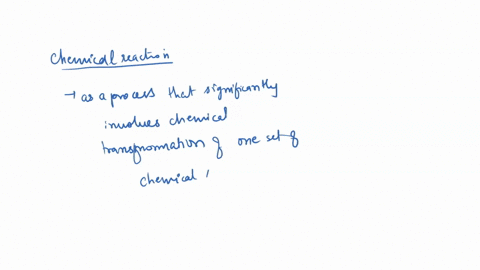 Chemical reaction
→ as a process that significantly
involves chemical
transformation of one set of
chemical